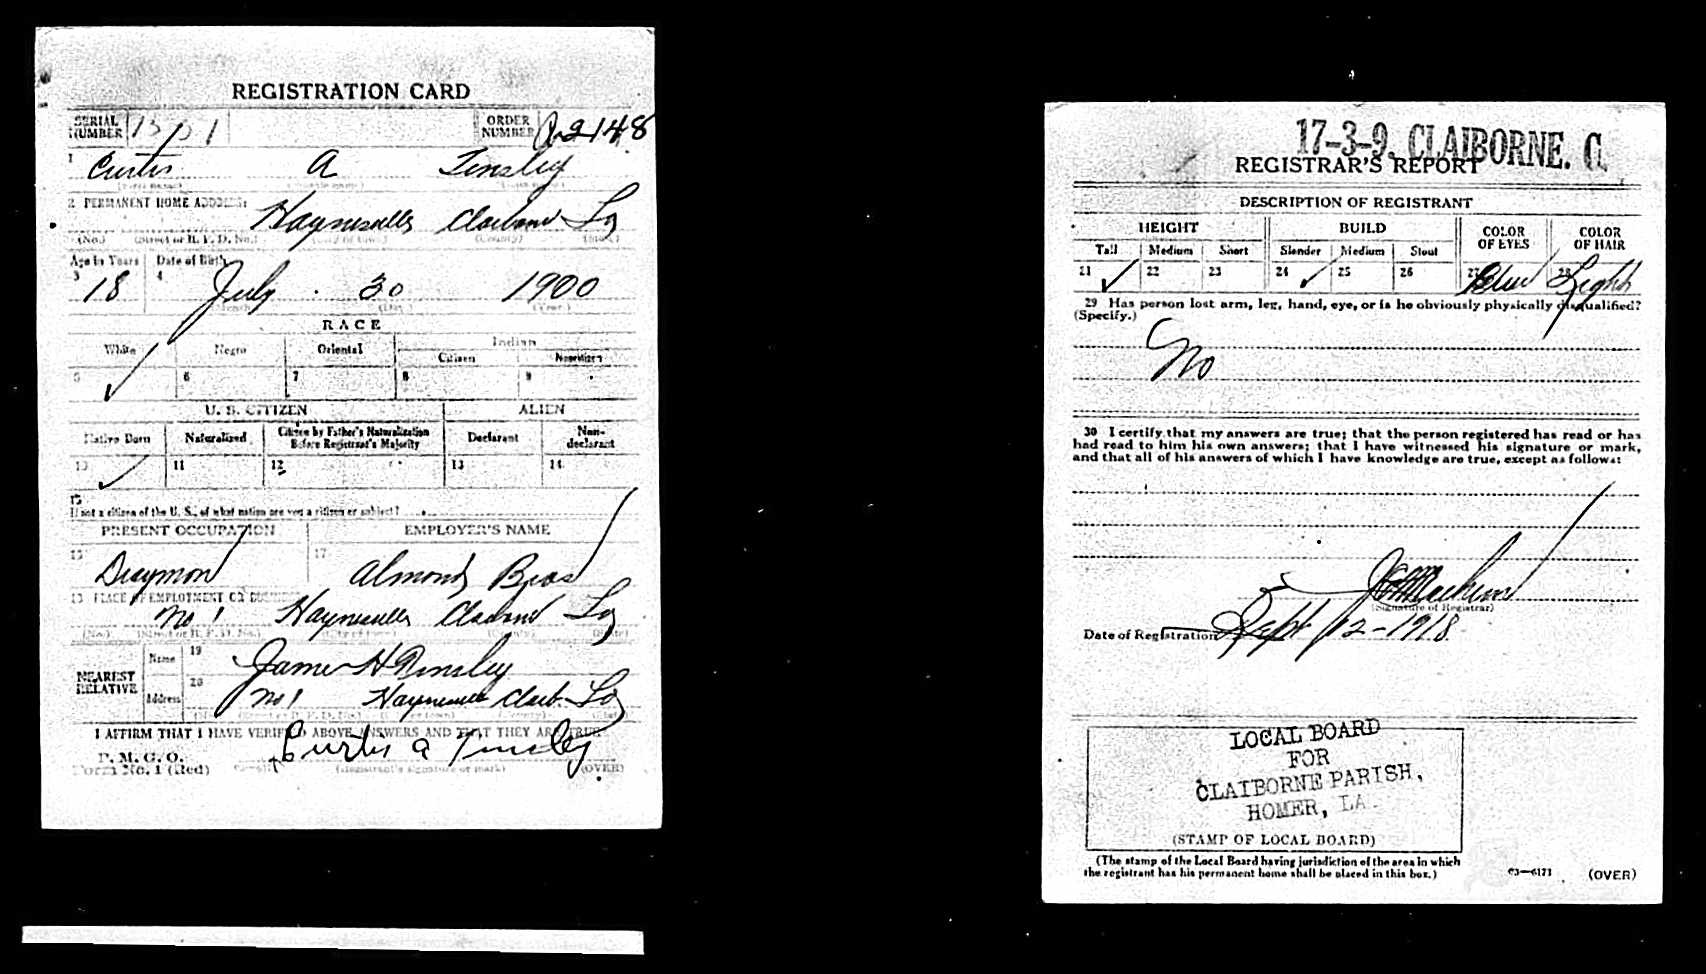 REGISTRATION CARD
SERIAL NUMBER
ORDER NUMBER A2148
1 Curtis A Tinsley
2 PERMANENT HOME ADDRESS:
Haynesville Claiborne La
(No.) (Street or R. F. D. No.) (City or town) (County) (State)
Age in Years Date of Birth
3 18 4 July 30 1900
(Month) (Day) (Year)
RACE
White Negro Oriental Indian
Citizen Noncitizen
5 ✓ 6 7 8 9
U. S. CITIZEN ALIEN
Native Born Naturalized Citizen by Father's Naturalization Before Registrant's Majority Declarant Non-declarant
10 ✓ 11 12 13 14
15
If not a citizen of the U. S., of what nation are you a citizen or subject?
PRESENT OCCUPATION EMPLOYER'S NAME
16 Drayman 17 Almond Bros
18 PLACE OF EMPLOYMENT OR BUSINESS
No 1 Haynesville Claiborne La
(No.) (Street or R. F. D. No.) (City or town) (County) (State)
NEAREST RELATIVE
Name 19 James H Tinsley
Address 20 No 1 Haynesville Claib. La
I AFFIRM THAT I HAVE VERIFIED ABOVE ANSWERS AND THAT THEY ARE TRUE
P. M. G. O.
Form No. 1 (Red)
Curtis A Tinsley
(Registrant's signature or mark) (OVER)
17-3-9. CLAIBORNE. C.
REGISTRAR'S REPORT
DESCRIPTION OF REGISTRANT
HEIGHT BUILD COLOR OF EYES COLOR OF HAIR
Tall Medium Short Slender Medium Stout
21 ✓ 22 23 24 ✓ 25 26 27 Blue 28 Light
29 Has person lost arm, leg, hand, eye, or is he obviously physically disqualified?
(Specify.)
No
30 I certify that my answers are true; that the person registered has read or has
had read to him his own answers; that I have witnessed his signature or mark,
and that all of his answers of which I have knowledge are true, except as follows:
(Signature of Registrar)
Date of Registration Sept 12-1918
LOCAL BOARD
FOR
CLAIBORNE PARISH,
HOMER, LA.
(STAMP OF LOCAL BOARD)
(The stamp of the Local Board having jurisdiction of the area in which
the registrant has his permanent home shall be placed in this box.)
03—6171 (OVER)